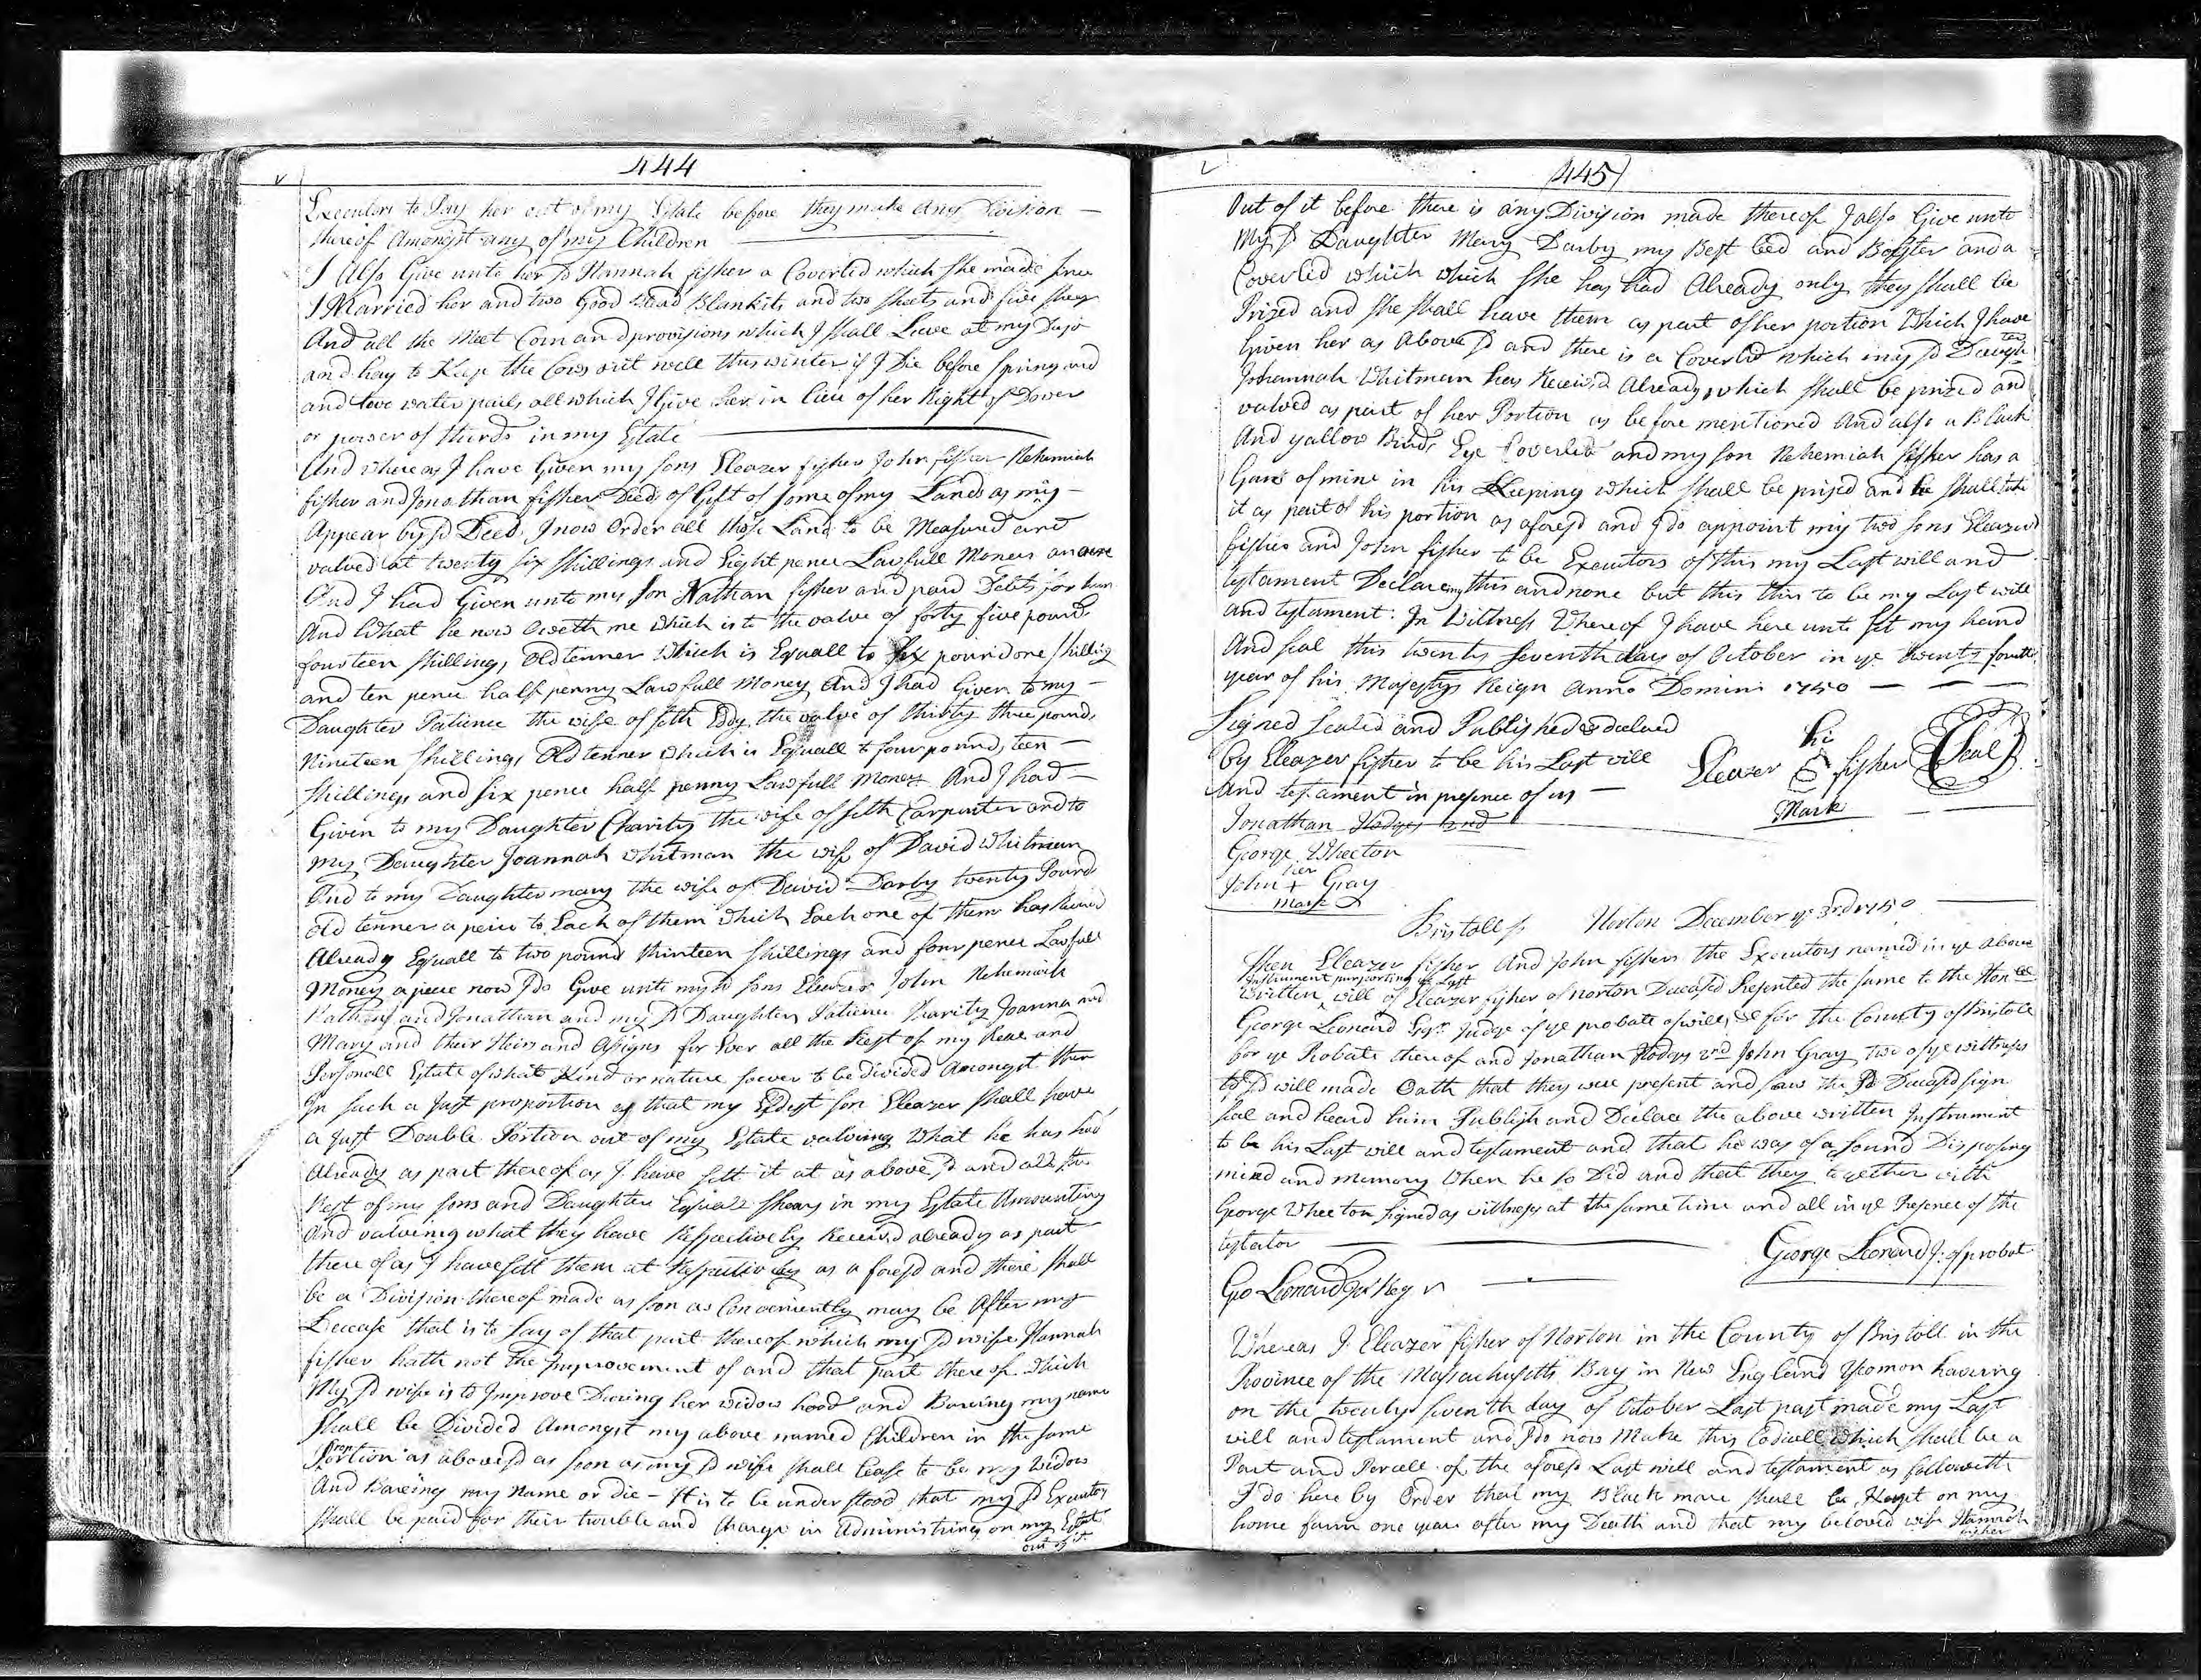 444
Executors to Pay her out of my Estate before they make any Division —
thereof Amongst any of my Children
I Also Give unto her sd Hannah fisher a Coverled which she made since
I Married her and two Good Blankits and two sheets and five
And all the Meet Corn and provisions which I shall Leave at my
and hay to Keep the Cows out well this winter if I Die before spring and
and two water pails all which I Give her in Lieu of her Right of Dower
or power of thirds in my Estate
And whereas I have Given my sons Eleazer fisher John fisher Nehemiah
fisher and Jonathan fisher Deeds of Gift of some of my Lands as may
Appear by sd Deeds I now Order all those Lands to be Measured and
valued at twenty six shillings and Eight pence Lawfull Money an acre
And I had Given unto my son Nathan fisher and paid Debts for him
And What he now Oweth me which is to the value of forty five pounds
fourteen shillings Old tenner Which is Equall to six pound one shilling
and ten pence half penny Lawfull Money And I had Given to my —
Daughter Patience the wife of Seth Eddy the value of thirty three pounds
Nineteen shillings Old tenner which is Equall to four pounds ten —
shillings and six pence half penny Lawfull Money And I had —
Given to my Daughter Charity the wife of Seth Carpenter and to
my Daughter Joannah Whitman the wife of David Whitman
And to my Daughter mary the wife of David Darby twenty Pounds
old tenner a peice to Each of them which Each one of them has Received
Already Equall to two pound thirteen shillings and four pence Lawfull
Money a peice now I do Give unto my sd sons Eleazer John Nehemiah
Nathan and Jonathan and my sd Daughters Patience Charity Joanna and
Mary and their Heirs and Assigns for Ever all the Rest of my Real and
Personall Estate of what Kind or nature soever to be divided Amongst them
In such a Just proportion as that my Eldest son Eleazer shall have
a Just Double Portion out of my Estate valuing What he has had
Already as part thereof as I have sett it at as above sd and all the
Rest of my sons and Daughters Equall shears in my Estate Amounting
And valueing what they have Respectively Received already as part
there of as I have sett them at Respectively as a fore sd and there shall
be a Division thereof made as soon as Conveniently may be After my
Decease that is to say of that part thereof which my sd wife Hannah
fisher hath not the Improvement of and that part there of Which
My sd wife is to Improve During her widow hood and Bareing my name
shall be Divided Amongst my above named Children in the same
Proportion as above sd as soon as my sd wife shall Cease to be my Widow
And Bareing my Name or die — It is to be under stood that my sd Executors
shall be paid for their trouble and Charge in Administring on my Estate
out of it
445
Out of it before there is any Division made thereof I also Give unto
My sd Daughter Mary Darby my Best bed and Bolster and a
Coverled which which She has had Already only they shall be
Prized and she shall have them as part of her portion Which I have
Given her as Above sd and there is a Coverled which my sd Daughter
Johannah Whitman has Received Already which shall be prized and
valued as part of her Portion as before mentioned And also a Black
And yallow Birds Eye Coverled and my son Nehemiah fisher has a
Gun of mine in his Keeping which shall be prised and he shall take
it as part of his portion as aforesd and I do appoint my two sons Eleazer
fisher and John fisher to be Executors of this my Last will and
testament Declareing this and none but this this to be my Last will
and testament: In Wittness Whereof I have here unto set my hand
And seal this twenty seventh day of October in ye twenty fourth
year of his Majestys Reign Anno Domini 1750 — — —
Signed Sealed and Published & declared
by Eleazer fisher to be his Last will
And testament in presence of us —
his
Eleazer fisher (Seal)
Mark
Jonathan Hodges 2nd
George Wheeton
her
John + Gray
mark
Bristoll ss Norton December ye 3rd 1750
Then Eleazer fisher And John fisher the Executors named in ye above
Instrument purporting ye Last
written will of Eleazer fisher of norton Deceased Presented the same to the Honble
George Leonard Esqr Judge of ye probate of wills &c for the County of Bristoll
for ye Probate thereof and Jonathan Hodges 2nd John Gray two of ye wittnesses
to sd will made Oath that they were present and saw the sd Deceased sign
seal and heard him Publish and Declare the above written Instrument
to be his Last will and testament and that he was of a sound Disposing
mind and memory When he so Did and that they together with
George Wheeton signed as wittness at the same time and all in ye Presence of the
testator
George Leonard J. of probate
Geo Leonard Jr Regr
Whereas I Eleazer fisher of Norton in the County of Bristoll in the
Province of the Massachusetts Bay in New England Yeomon haveing
on the twenty seventh day of October Last past made my Last
will and testament and I do now Make this Codicell Which shall be a
Part and Percell of the aforesd Last will and testament as followeth
I do here by Order that my Black mare shall be Kept on my
home farm one year after my Death and that my beloved wife Hannah
fisher